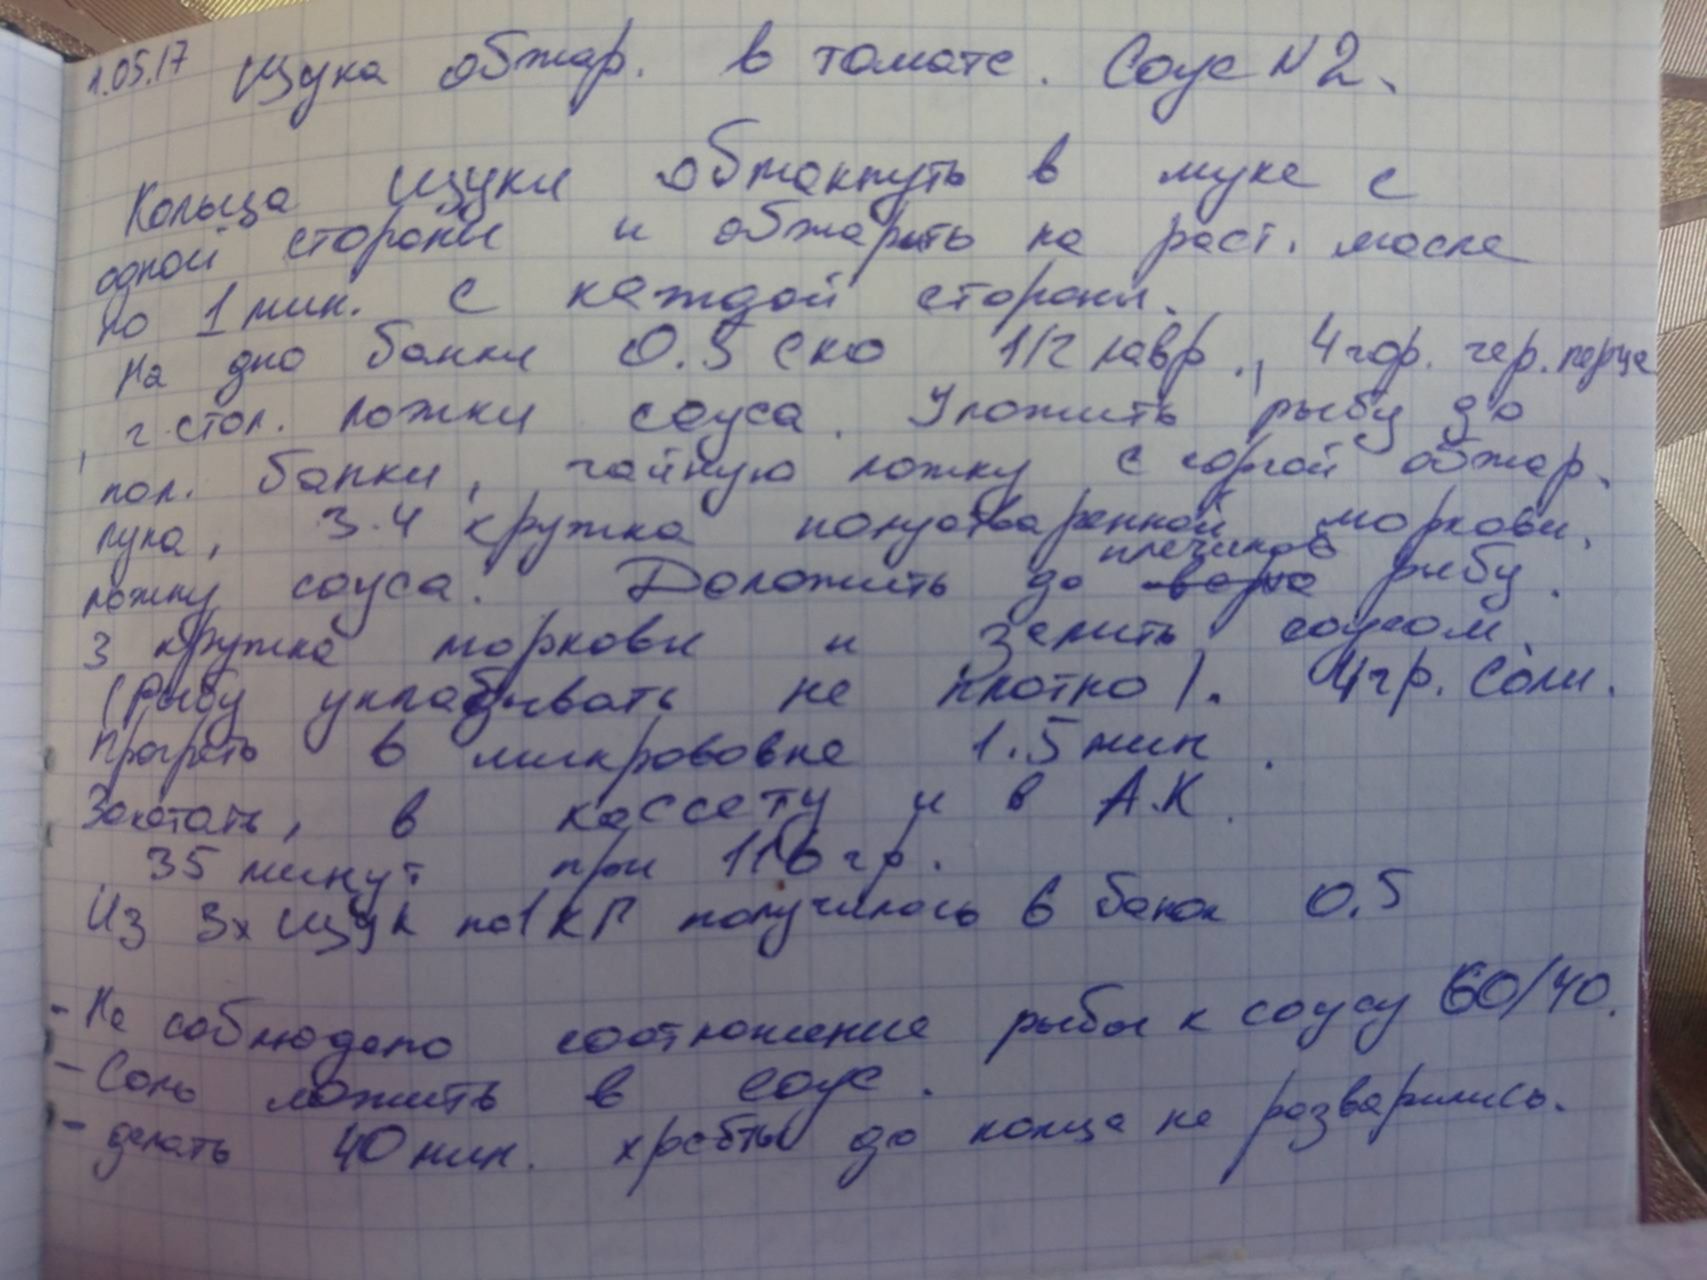 1.05.17 Щука обжар. в томате. Соус N2.
Кольца щуки обмакнуть в муке с
одной стороны и обжарить на раст. масле
по 1 мин. с каждой стороны.
На дно банки 0.5 ско 1/2 лавр., 4 гор. чер. перца
, 2 стол. ложки соуса. Уложить рыбу до
пол. банки, чайную ложку с горкой обжар.
лука, 3-4 кружка полуотваренной моркови,
ложку соуса. Доложить до плечиков рыбу.
3 кружка моркови и залить соусом.
(Рыбу укладывать не плотно). 4 гр. соли.
Прогреть в микрововке 1.5 мин.
Закатать, в кассету и в А.К.
35 минут при 116 гр.
Из 3х щук по 1 кг получилось 6 банок 0.5
- Не соблюдено соотношение рыбы к соусу 60/40.
- Соль ложить в соус.
- делать 40 мин. хребты до конца не разварились.